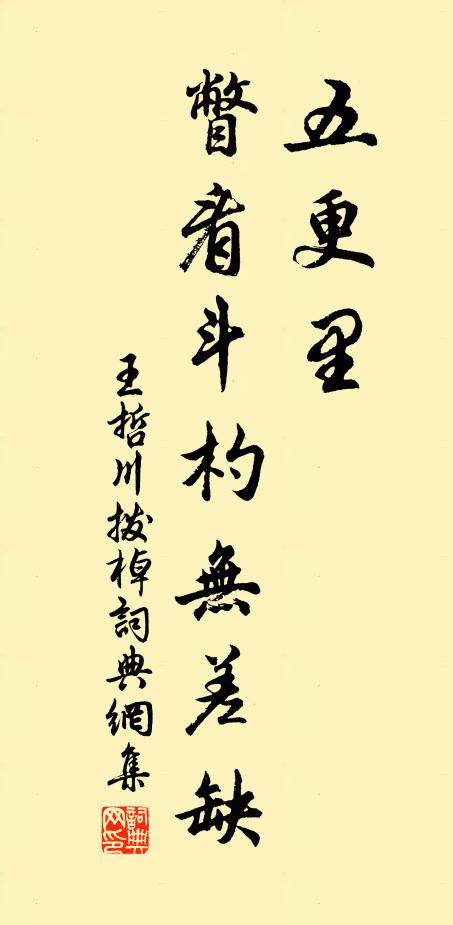 五更里
瞥看斗杓無差缺
王哲川撥棹詞典網集
詞典
網印